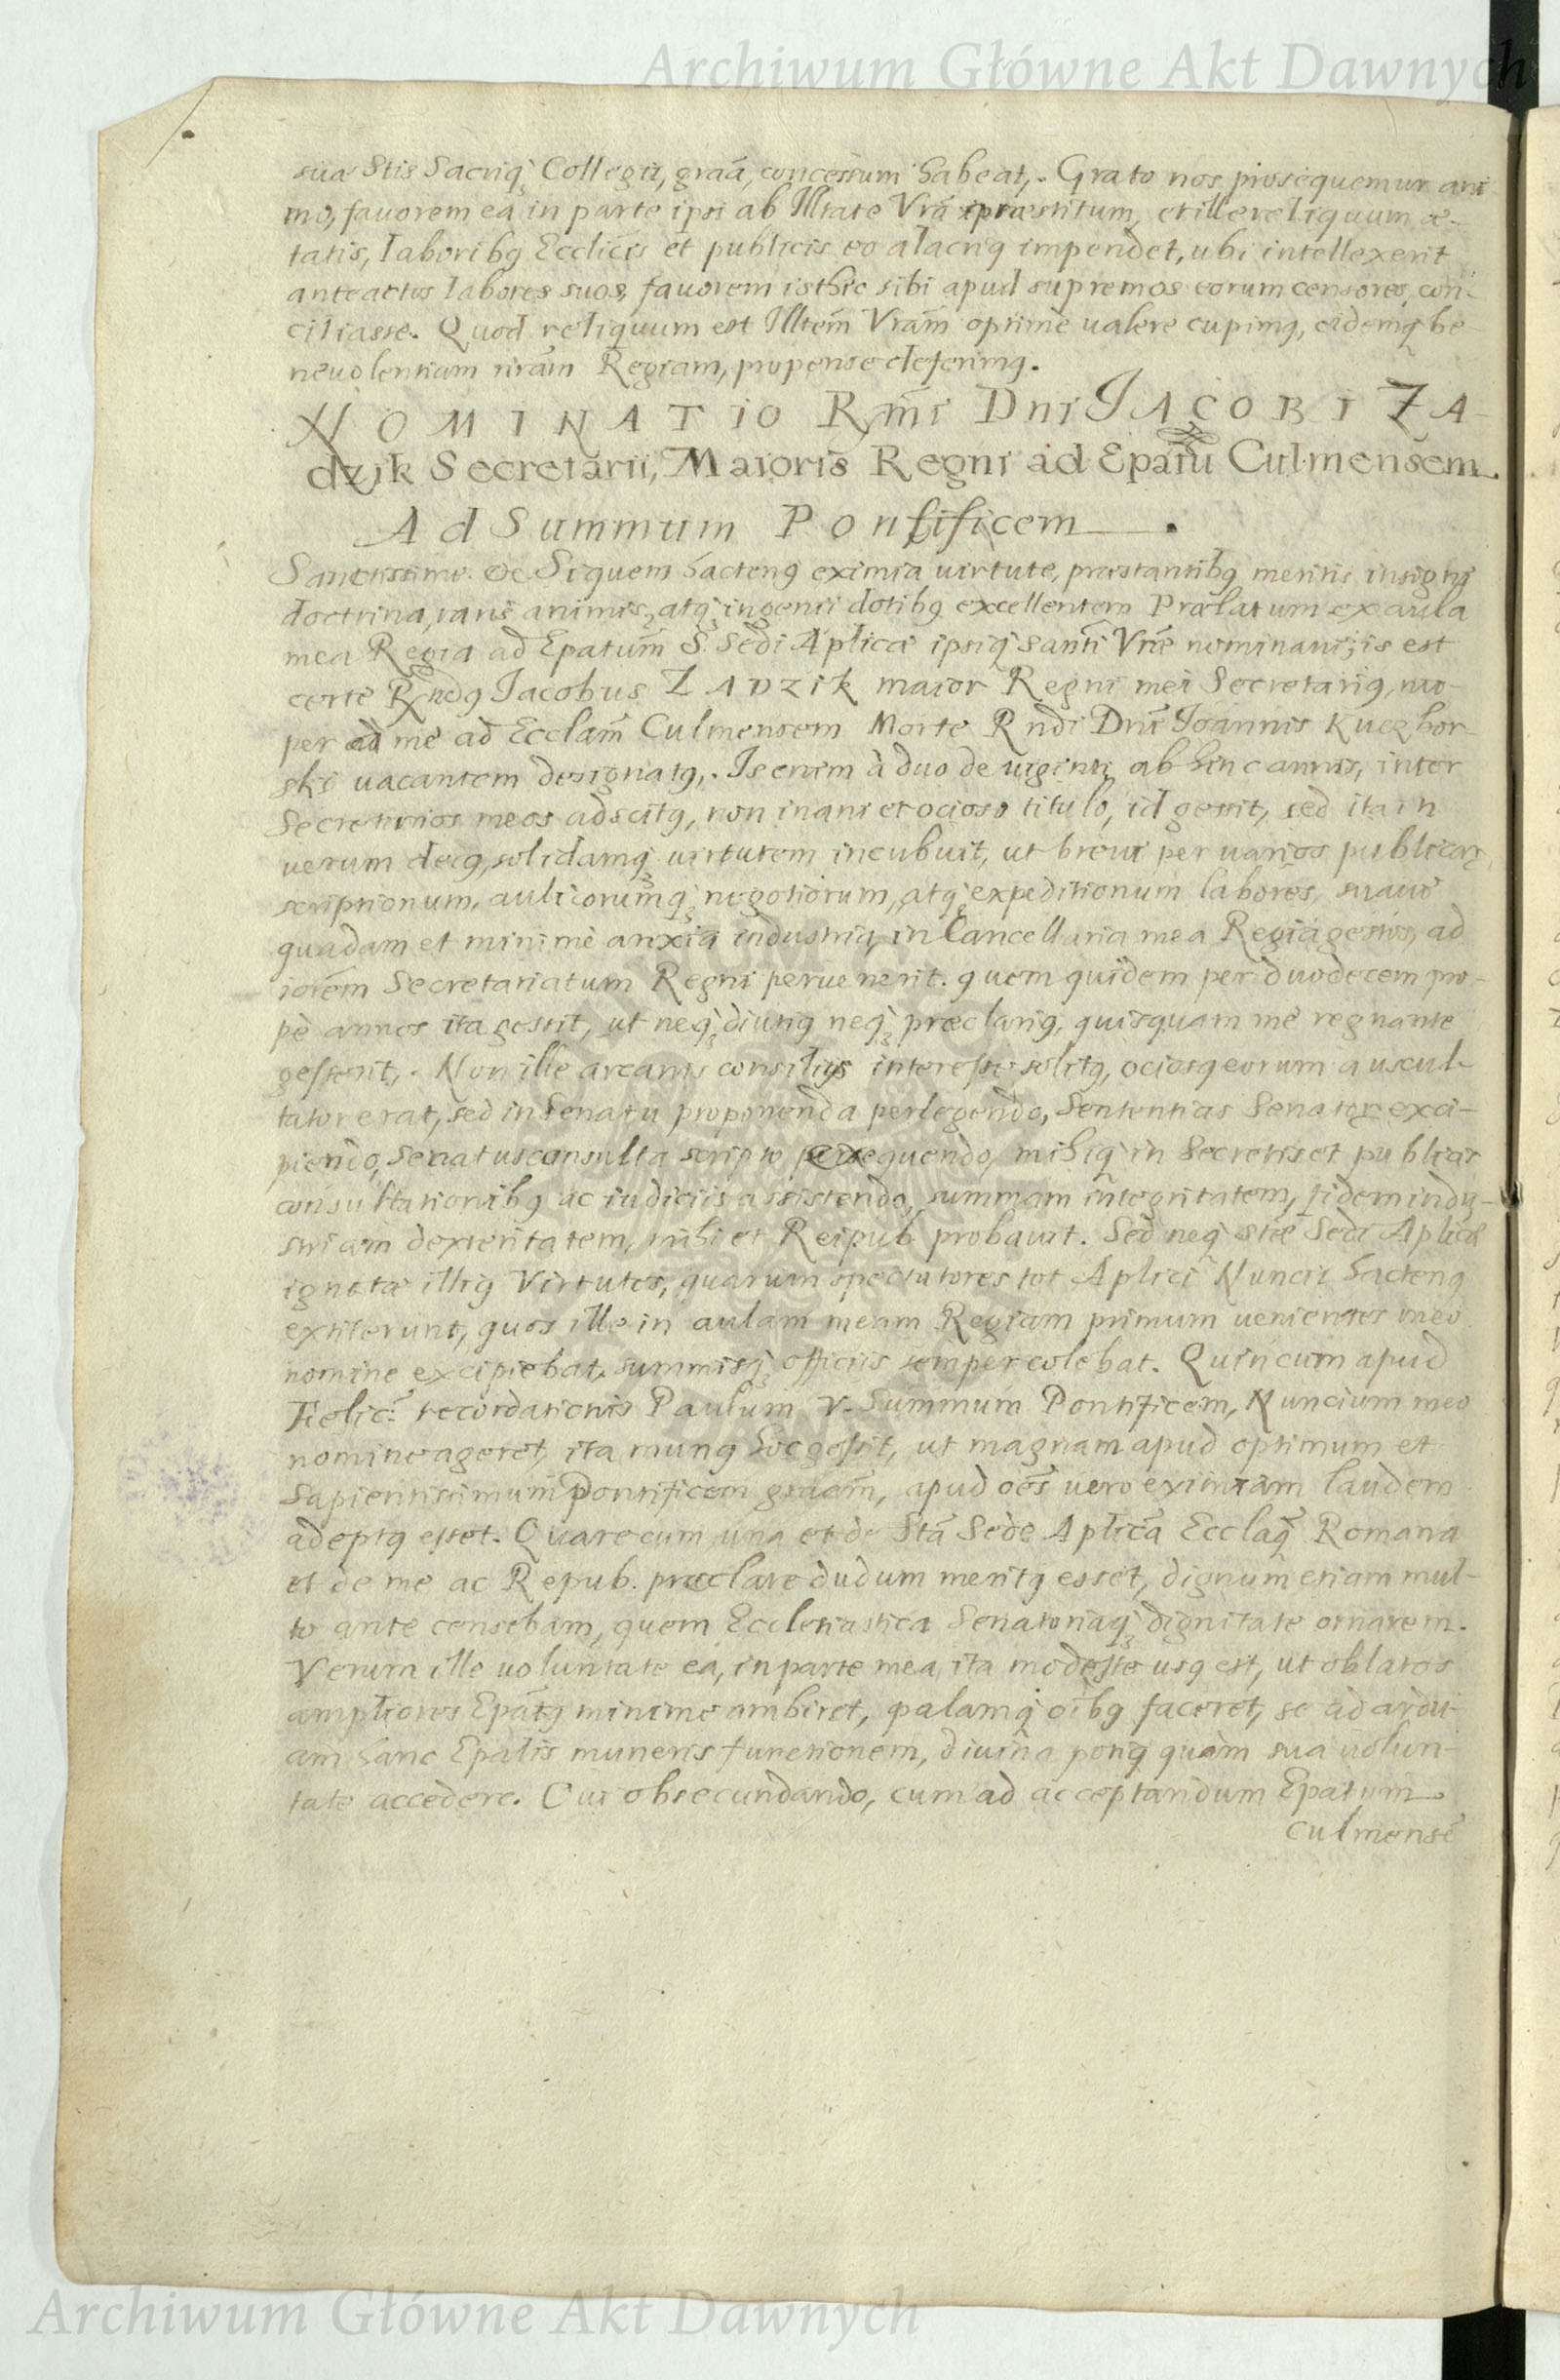 Archiwum Główne Akt Dawnych
suæ Stis Sacriq; Collegii, graã, concessum habeat,. Grato nos prosequemur ani
mo, fauorem ea in parte ipsi ab Illtate Vrã præstitum, et ille reliquum æ-
tatis, laborib9 Ecclicis et publicis eo alacri9 impendet, ubi intellexerit
anteactos labores suos, fauorem isthic sibi apud supremos eorum censores, con-
ciliasse. Quod reliquum est Illtem̃ Vram̃ optime ualere cupim9, eidemq; be-
neuolentiam nram̃ Regiam, propense deferim9.
NOMINATIO Rmĩ Dni JACOBI ZA-
dzik Secretarii, Maioris Regni ad Epatũ Culmensem.
Ad Summum Pontificem.
Sanctissime. &c. Siquem hacten9 eximia uirtute, præstantib9 meritis, insigni
doctrina, raris animis, atq; ingenii dotib9 excellentem Prælatum ex aula
mea Regia ad Epatum̃ S. Sedi Aplicæ ipsiq; Santi Vræ nominaui; is est
certe Rnd9 Jacobus ZADZIK maior Regni mei Secretari9, nu-
per ad me ad Ecclam̃ Culmensem Morte Rndi Dni Joannis Kuczbor-
ski uacantem designat9,. Is enim à duo de uiginti ab hinc annis, inter
Secretarios meos adscit9, non inani et ocioso titulo, id gessit, sed ita in
uerum dec9, solidamq; uirtutem incubuit, ut breui per uarios publicar;
scriptionum, aulicorumq; negotiorum, atq; expeditionum labores, suaui
quadam et minimè anxia industria, in Cancellaria mea Regia gestos, ad
iorem̃ Secretariatum Regni peruenerit. quem quidem per duodecem pro-
pè annos ita gessit, ut neq; diuti9 neq; præclari9, quisquam me regnante
gesserit,. Non ille arcanis consiliis interesse solit9, ocios9 eorum auscul-
tator erat, sed in Senatu proponenda perlegendo, Sententias Senator; exci-
piendo, Senatusconsulta scripto persequendo, mihiq; in Secretis et publicis
consultationib9 ac iudiciis assistendo, summam integritatem, fidem indu-
striam dexteritatem, mihi et Reipub. probauit. Sed neq; Stæ Sedi Aplicæ
ignotæ illi9 Virtutes, quarum spectatores tot Aplici Nuncii hacten9
extiterunt, quos ille in aulam meam Regiam primum uenientes meo
nomine excipiebat, summisq; officiis semper colebat. Quin cum apud
Fielic: recordationis Paulum V. Summum Pontificem, Nuncium meo
nomine ageret, ita mun9 hoc gessit, ut magnam apud optimum et
Sapientissimum Pontificem graam̃, apud oẽs uero eximiam laudem
adept9 esset. Quare cum una et de Stã Sede Aplicã Ecclaq; Romana
et de me ac Repub. præclare dudum merit9 esset, dignum etiam mul-
to ante censebam, quem Ecclesiastica Senatoriaq; dignitate ornarem.
Verum ille uoluntate ea, in parte mea, ita modeste us9 est, ut oblatos
ampliores Epat9 minime ambiret, palamq; oĩb9 faceret, se ad ardu-
am hanc Epalis muneris functionem, diuina poti9 quàm sua uolun-
tate accedere. Cui obsecundando, cum ad acceptandum Epatum
Culmensẽ
Archiwum Główne Akt Dawnych